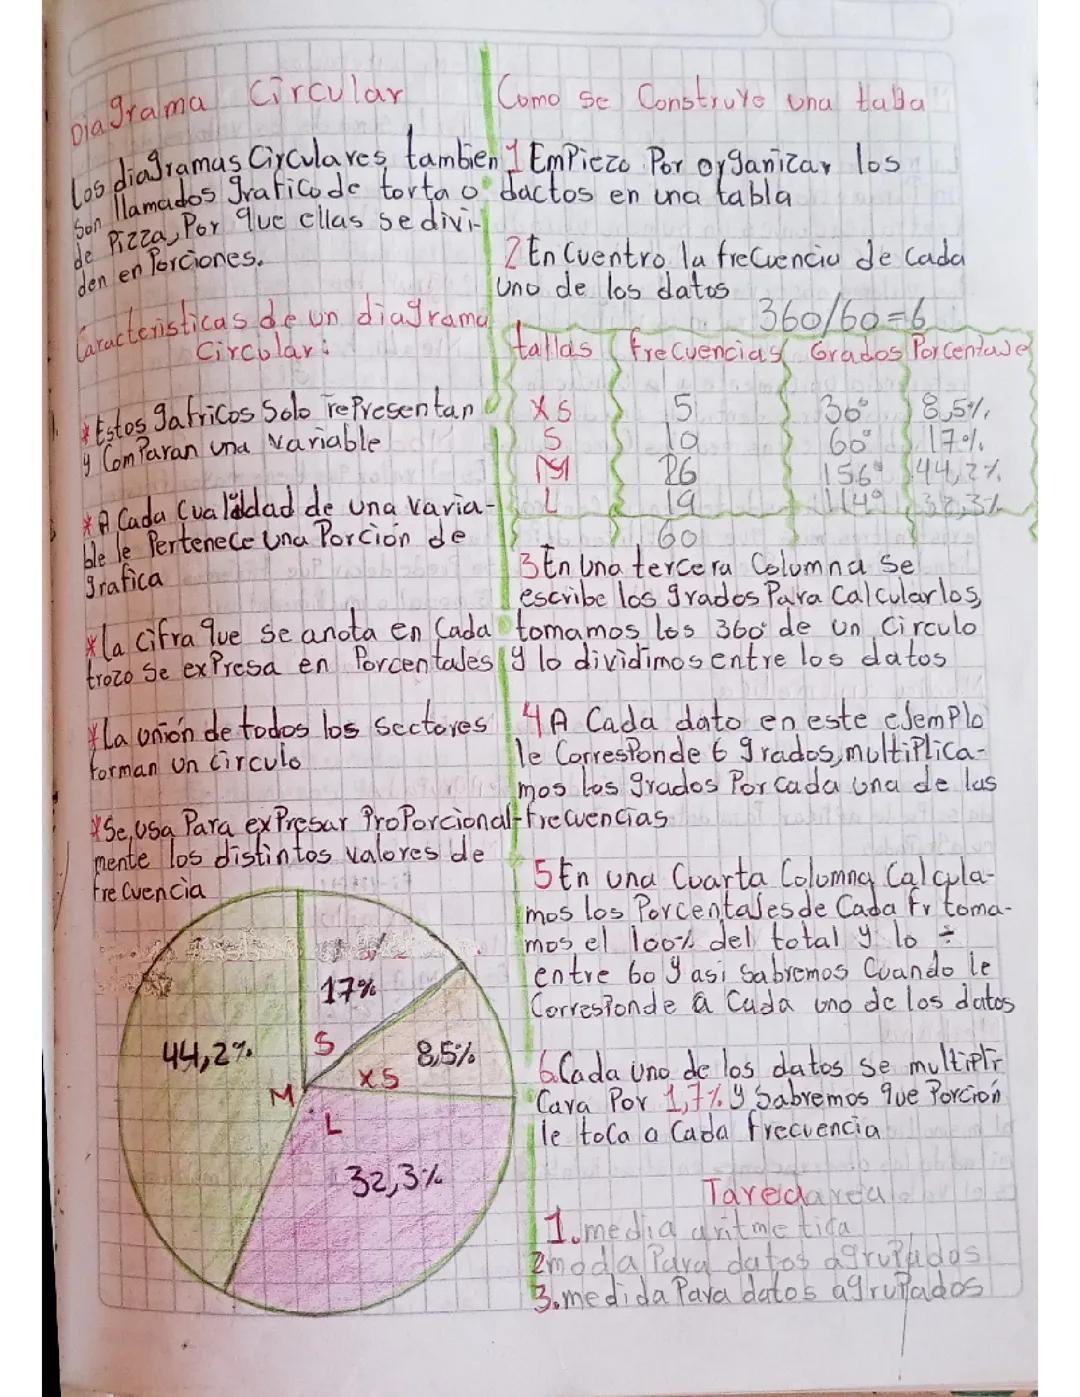 Diagrama Circular
los diagramas Circulares tambien
son llamados grafico de torta o
de Pizza, Por que ellas se divi-
den en Porciones.
Caracteristicas de un diagrama
Circular:
*Estos gafricos Solo rePresentan
y ComParan una variable
*A Cada Cualidad de una varia-
ble le Pertenece una Porción de
grafica
*la cifra que se anota en Cada
trozo se exPresa en Porcentajes
*La unión de todos los sectores
forman un circulo
*Se usa Para exPresar ProPorcional-
mente los distintos valores de
frecuencia
17%
S
44,2%
8,5%
XS
M
L
32,3%
Como se Construye una tabla
1 EmPiezo Por organizar los
dactos en una tabla
2 EnCuentro la frecuencia de Cada
uno de los datos
360/60=6
tallas frecuencias Grados Porcentaje
XS 5 30° 8,5%
S 10 60° 17%
M 26 156° 44,2%
L 19 114° 32,3%
60
3 En una tercera Columna se
escribe los grados Para Calcularlos
tomamos los 360° de un Circulo
y lo dividimos entre los datos
4 A Cada dato en este ejemPlo
le CorresPonde 6 grados, multiPlica-
mos los grados Por cada una de las
frecuencias
5 En una Cuarta Columna Calcula-
mos los Porcentajes de Cada Fr toma-
mos el 100% del total y lo ÷
entre 60 y asi sabremos Cuando le
CorresPonde a Cada uno de los datos
6. Cada uno de los datos se multipli
Cara Por 1,7% y Sabremos que Porción
le toca a Cada frecuencia
Tarea
1. media aritmetica
2 moda Para datos agruPados
3. medida Para datos agruPados